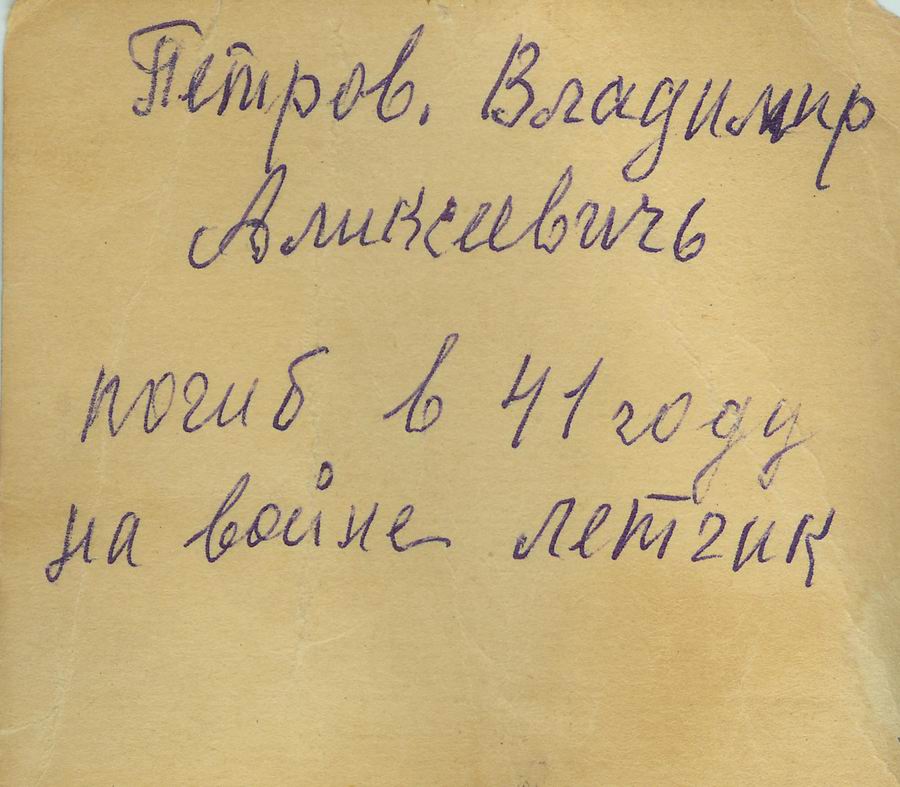 Петров. Владимир
Аликсеевичь
погиб в 41 году
на войне летчик